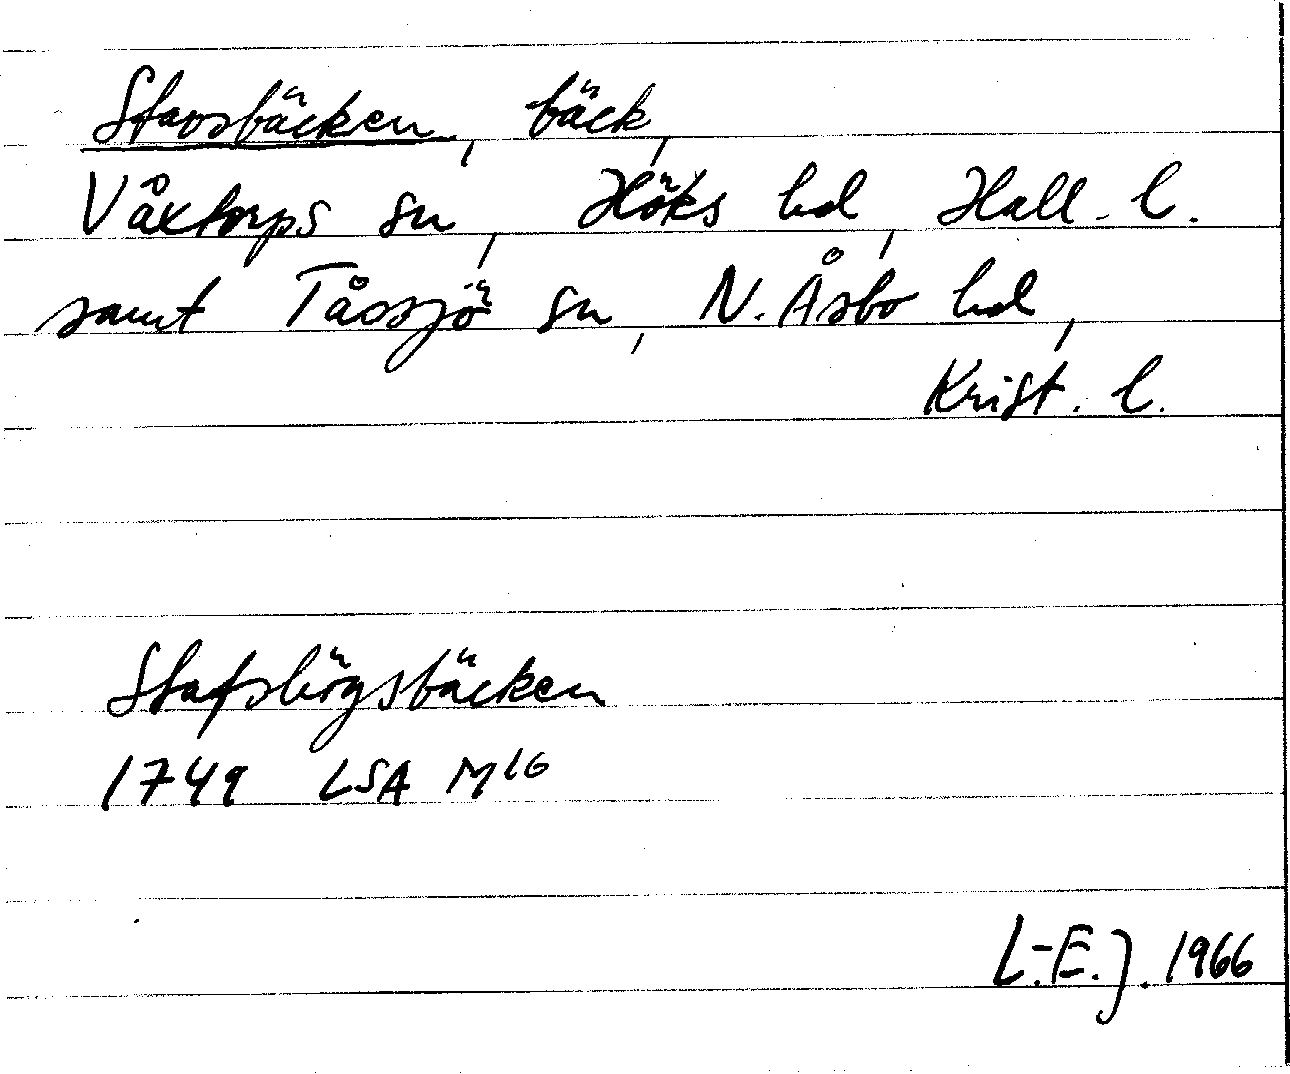 Stavsbäcken, bäck,
Våxtorps sn, Höks hd, Hall. l.
samt Tåssjö sn, N. Åsbo hd,
Krist. l.
Stafshögsbäcken
1749 LSA M16
L.-E. J. 1966